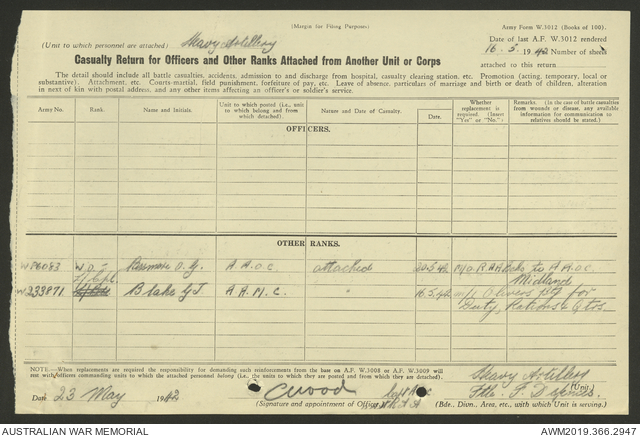 (Margin for Filing Purposes)
Army Form W.3012 (Books of 100).
Date of last A.F. W.3012 rendered
16 . 5 . 1942 Number of sheets
attached to this return
(Unit to which personnel are attached) Heavy Artillery
Casualty Return for Officers and Other Ranks Attached from Another Unit or Corps
The detail should include all battle casualties, accidents, admission to and discharge from hospital, casualty clearing station, etc. Promotion (acting, temporary, local or
substantive). Attachment, etc. Courts-martial, field punishment, forfeiture of pay, etc. Leave of absence, particulars of marriage and birth or death of children, alteration
in next of kin with postal address, and any other items affecting an officer's or soldier's service.
Army No. Rank. Name and Initials. Unit to which posted (i.e., unit to which belong and from which detached). Nature and Date of Casualty. Date. Whether replacement is required. (Insert "Yes" or "No.") Remarks. (In the case of battle casualties from wounds or disease, any available information for communication to relatives should be stated.)
OFFICERS.
OTHER RANKS.
WP6083 D. G. A.A.O.C. attached 20.5.42 to A.A.O.C.
Midland
W233871 Blake G J. A.A.M.C. " 16.5.42 for
Duty, Rations & Qtrs.
NOTE:—When replacements are required the responsibility for demanding each reinforcements from the base on A.F. W.3008 or A.F. W.3009 will
rest with officers commanding units to which the attached personnel belong (i.e., the units to which they are posted and from which they are detached).
Heavy Artillery
Date 23 May 1942
Cwood
Ftle. F. Defences (Unit)
(Signature and appointment of Officer)
(Bde., Divn., Area, etc., with which Unit is serving.)
AUSTRALIAN WAR MEMORIAL
AWM2019.366.2947